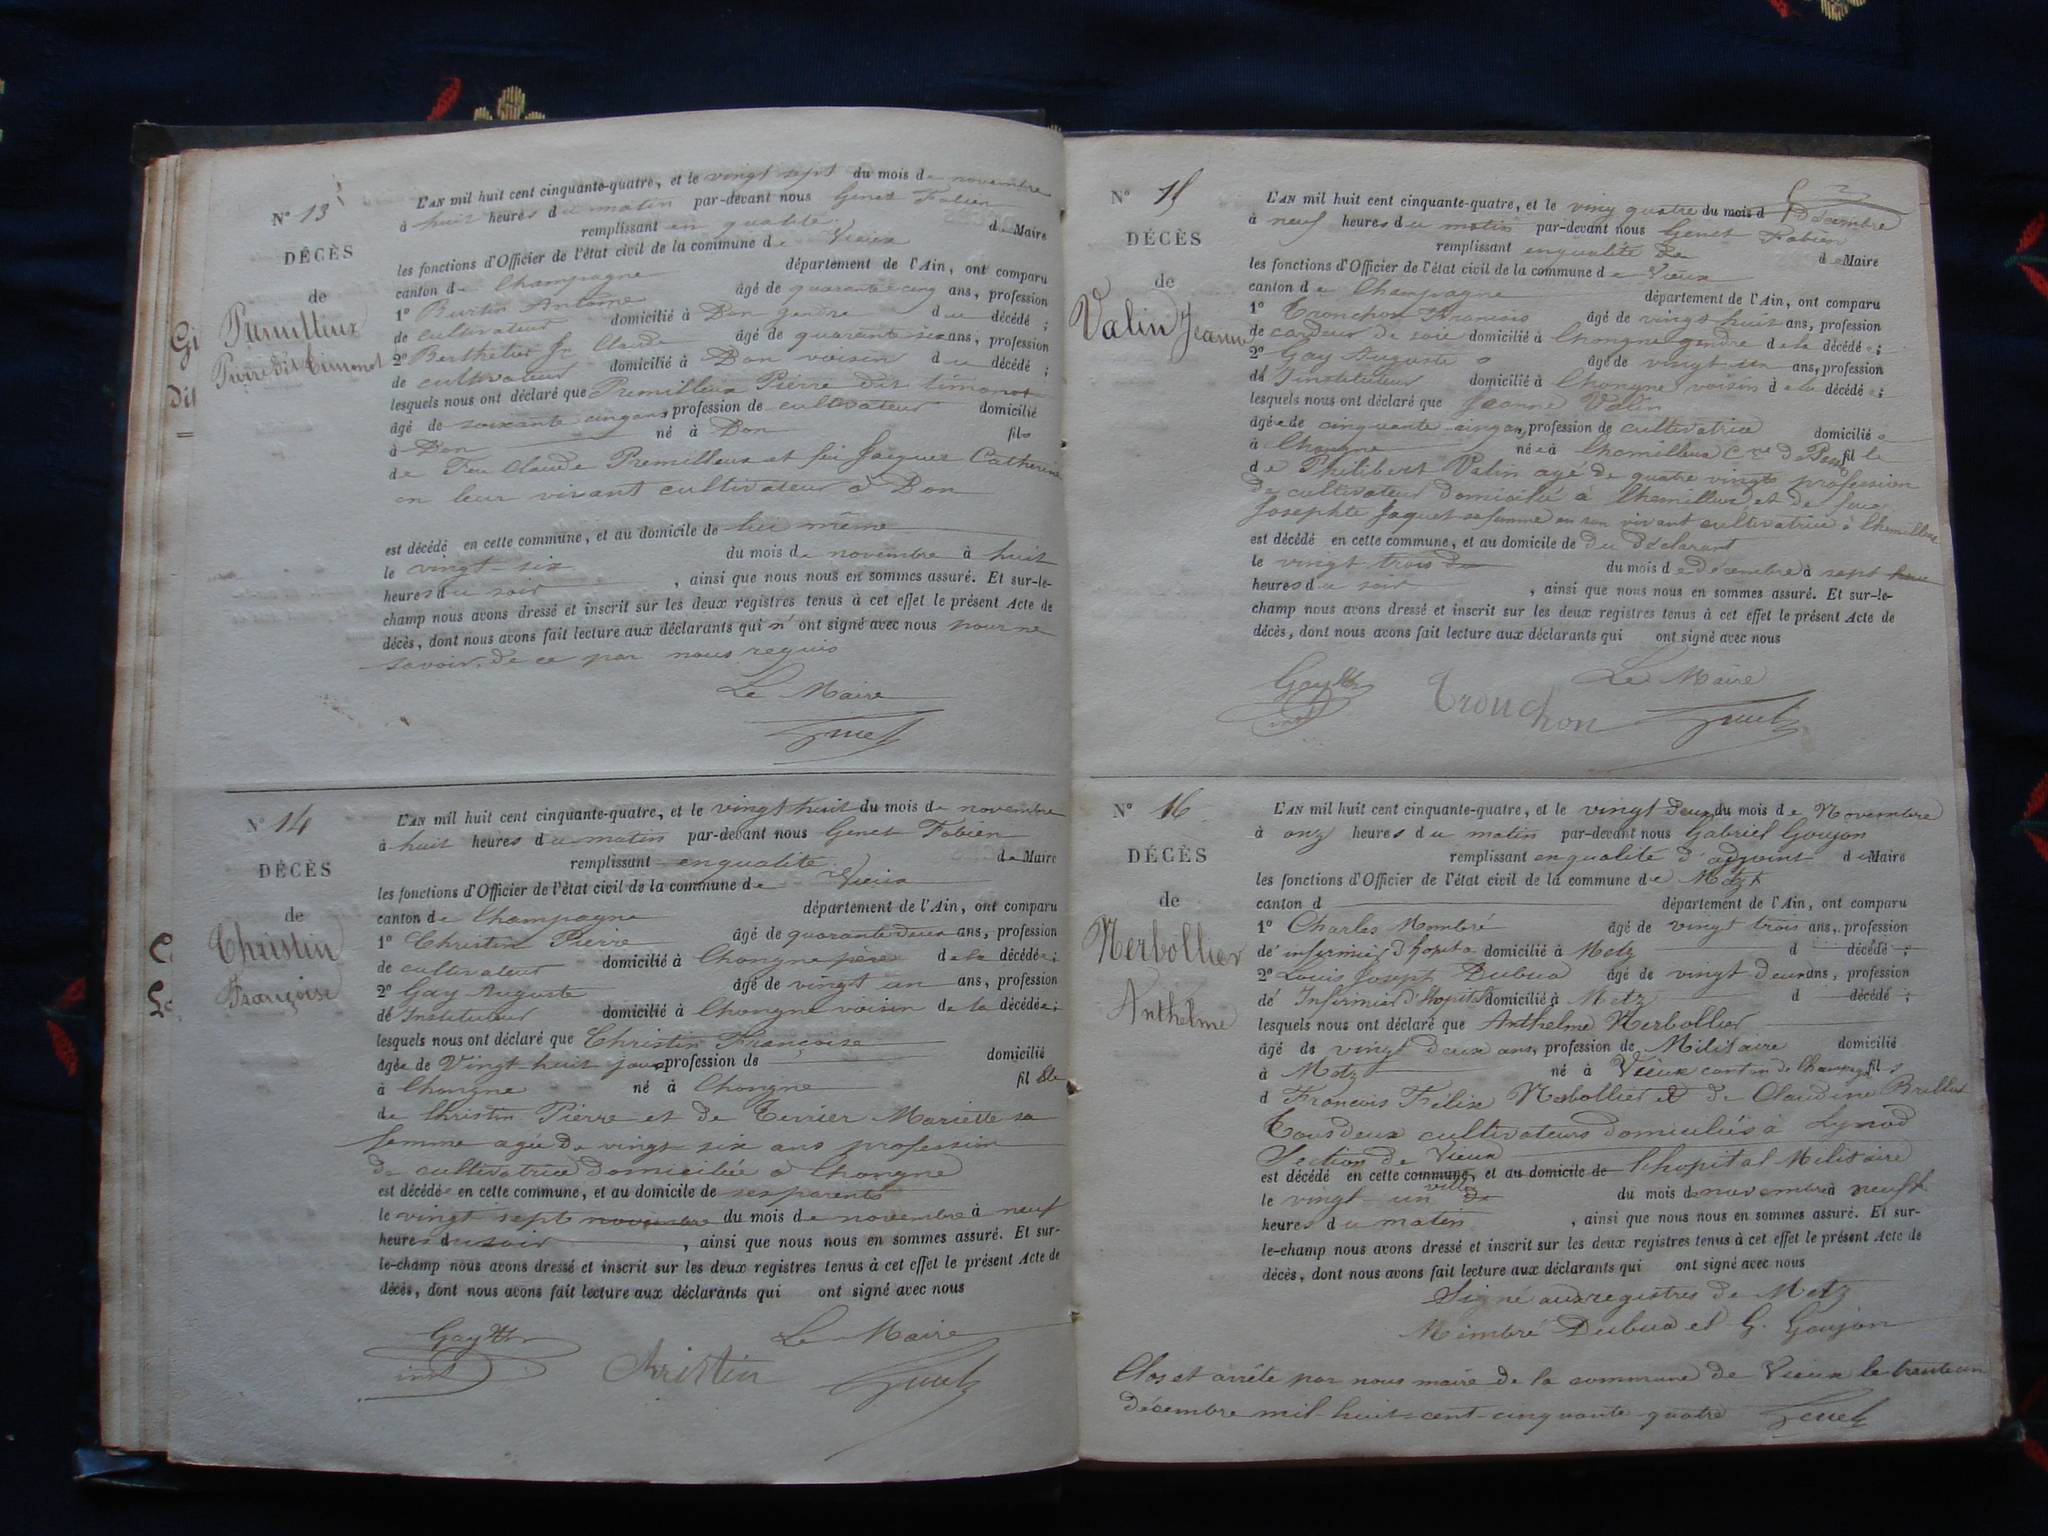 N° 13
DÉCÈS
de
Premillieux
Pierre dit Timonot
L'AN mil huit cent cinquante-quatre, et le vingt sept du mois de novembre
à huit heures du matin par-devant nous Genet Fabien
remplissant en qualité de Maire
les fonctions d'Officier de l'état civil de la commune de Vieux
canton de Champagne département de l'Ain, ont comparu
1° Burtin Antoine âgé de quarante cinq ans, profession
de cultivateur domicilié à Don gendre du décédé ;
2° Berthelier Jn Claude âgé de quarante six ans, profession
de cultivateur domicilié à Don voisin du décédé ;
lesquels nous ont déclaré que Premilleux Pierre dit timonot
âgé de soixante cinq ans, profession de cultivateur domicilié
à Don né à Don fils
de Feu Claude Premilleux et feu Jacquet Catherine
en leur vivant cultivateur à Don
est décédé en cette commune, et au domicile de lui même
le vingt-six du mois de novembre à huit
heures du soir , ainsi que nous nous en sommes assuré. Et sur-le-
champ nous avons dressé et inscrit sur les deux registres tenus à cet effet le présent Acte de
décès, dont nous avons fait lecture aux déclarants qui n'ont signé avec nous pour ne
savoir, de ce par nous requis
Le Maire
Genet
N° 14
DÉCÈS
de
Christin
Françoise
L'AN mil huit cent cinquante-quatre, et le vingt huit du mois de novembre
à huit heures du matin par-devant nous Genet Fabien
remplissant en qualité de Maire
les fonctions d'Officier de l'état civil de la commune de Vieux
canton de Champagne département de l'Ain, ont comparu
1° Christin Pierre âgé de quarante deux ans, profession
de cultivateur domicilié à Chongne père de la décédée ;
2° Gay Auguste âgé de vingt un ans, profession
de Instituteur domicilié à Chongne voisin de la décédée ;
lesquels nous ont déclaré que Christin Françoise
âgée de Vingt-huit jours profession de domicilié
à Chongne né à Chongne fille
de Christin Pierre et de Terrier Mariette sa
femme agée de vingt-six ans profession
de cultivatrice domiciliée à Chongne
est décédée en cette commune, et au domicile de ses parents
le vingt sept novembre du mois de novembre à neuf
heures du soir , ainsi que nous nous en sommes assuré. Et sur-
le-champ nous avons dressé et inscrit sur les deux registres tenus à cet effet le présent Acte de
décès, dont nous avons fait lecture aux déclarants qui ont signé avec nous
Gay
inst
Christin
Le Maire
Genet
N° 15
DÉCÈS
de
Valin Jeanne
L'AN mil huit cent cinquante-quatre, et le vingt quatre du mois d décembre
à neuf heures du matin par-devant nous Genet Fabien
remplissant en qualité de de Maire
les fonctions d'Officier de l'état civil de la commune de Vieux
canton de Champagne département de l'Ain, ont comparu
1° Tronchon Francois âgé de vingt huit ans, profession
de cardeur de soie domicilié à Chongne gendre de la décédée ;
2° Gay Auguste âgé de vingt un ans, profession
de Instituteur domicilié à Chongne voisin de la décédée ;
lesquels nous ont déclaré que Jeanne Valin
âgée de cinquante cinq ans, profession de cultivatrice domiciliée
à Chongne née à Chemilleux Cne de Passin fille
de Philibert Valin agé de quatre vingts profession
de cultivateur domicilié à Chemilleux et de feue
Josephte Jaquet sa femme en son vivant cultivatrice à Chemilleux
est décédé en cette commune, et au domicile de du déclarant
le vingt trois de du mois de décembre à sept heure
heures du soir , ainsi que nous nous en sommes assuré. Et sur-le-
champ nous avons dressé et inscrit sur les deux registres tenus à cet effet le présent Acte de
décès, dont nous avons fait lecture aux déclarants qui ont signé avec nous
Gay
inst
Trouchon
Le Maire
Genet
N° 16
DÉCÈS
de
Nerbollier
Anthelme
L'AN mil huit cent cinquante-quatre, et le vingt deux du mois de Novembre
à onz heures du matin par-devant nous Gabriel Goujon
remplissant en qualité d'adjoint de Maire
les fonctions d'Officier de l'état civil de la commune de Metz
canton d département de l'Ain, ont comparu
1° Charles Mombré âgé de vingt trois ans, profession
de infirmier d'hopita domicilié à Metz d décédé ;
2° Louis Joseph Dubua âgé de vingt deux ans, profession
de Infirmier d'hopital domicilié à Metz d décédé ;
lesquels nous ont déclaré que Anthelme Nerbollier
âgé de vingt deux ans, profession de Militaire domicilié
à Metz né à Vieux canton de Champagne fils
d Francois Félix Nerbollier et de Claudine Brillat
Tous deux cultivateurs domiciliés à Lynod
Section de Vieux
est décédé en cette commune, ville et au domicile de l'hopital Militaire
le vingt-un de du mois de novembre à neuf
heures du matin , ainsi que nous nous en sommes assuré. Et sur-
le-champ nous avons dressé et inscrit sur les deux registres tenus à cet effet le présent Acte de
décès, dont nous avons fait lecture aux déclarants qui ont signé avec nous
Signé aux registres de Metz
Mimbré Dubua et G. Goujon
Clos et arrêté par nous maire de la commune de Vieux le trente un
décembre mil-huit-cent-cinquante-quatre Genet